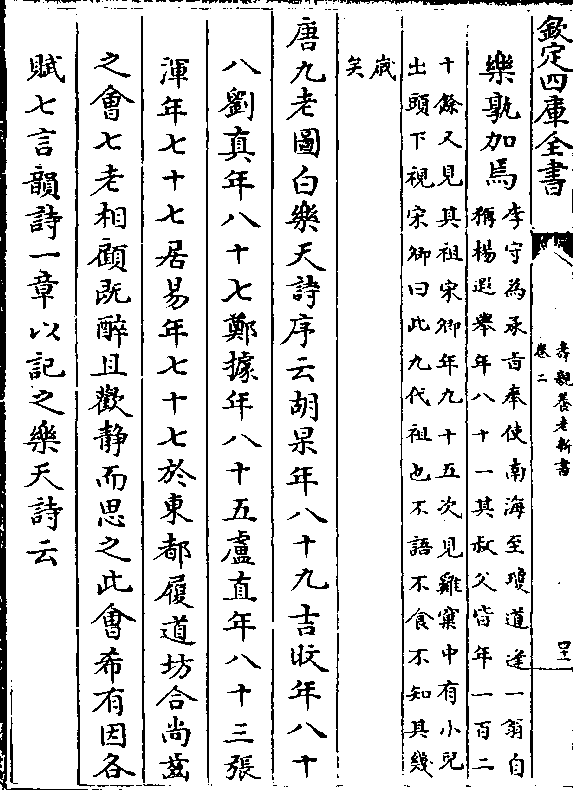 欽定四庫全書
壽親養老新書
卷二
四十二
樂孰加焉
李守為承旨奉使南海至瓊道逢一翁自
稱楊遐舉年八十一其叔父皆年一百二
十餘又見其祖宋卿年九十五次見雞窠中有小兒
出頭下視宋卿曰此九代祖也不語不食不知其幾
歳
矣
唐九老圖白樂天詩序云胡杲年八十九吉旼年八十
八劉真年八十七鄭據年八十五盧直年八十三張
渾年七十七居易年七十七於東都履道坊合尚茲
之會七老相顧既醉且歡静而思之此會希有因各
賦七言韻詩一章以記之樂天詩云